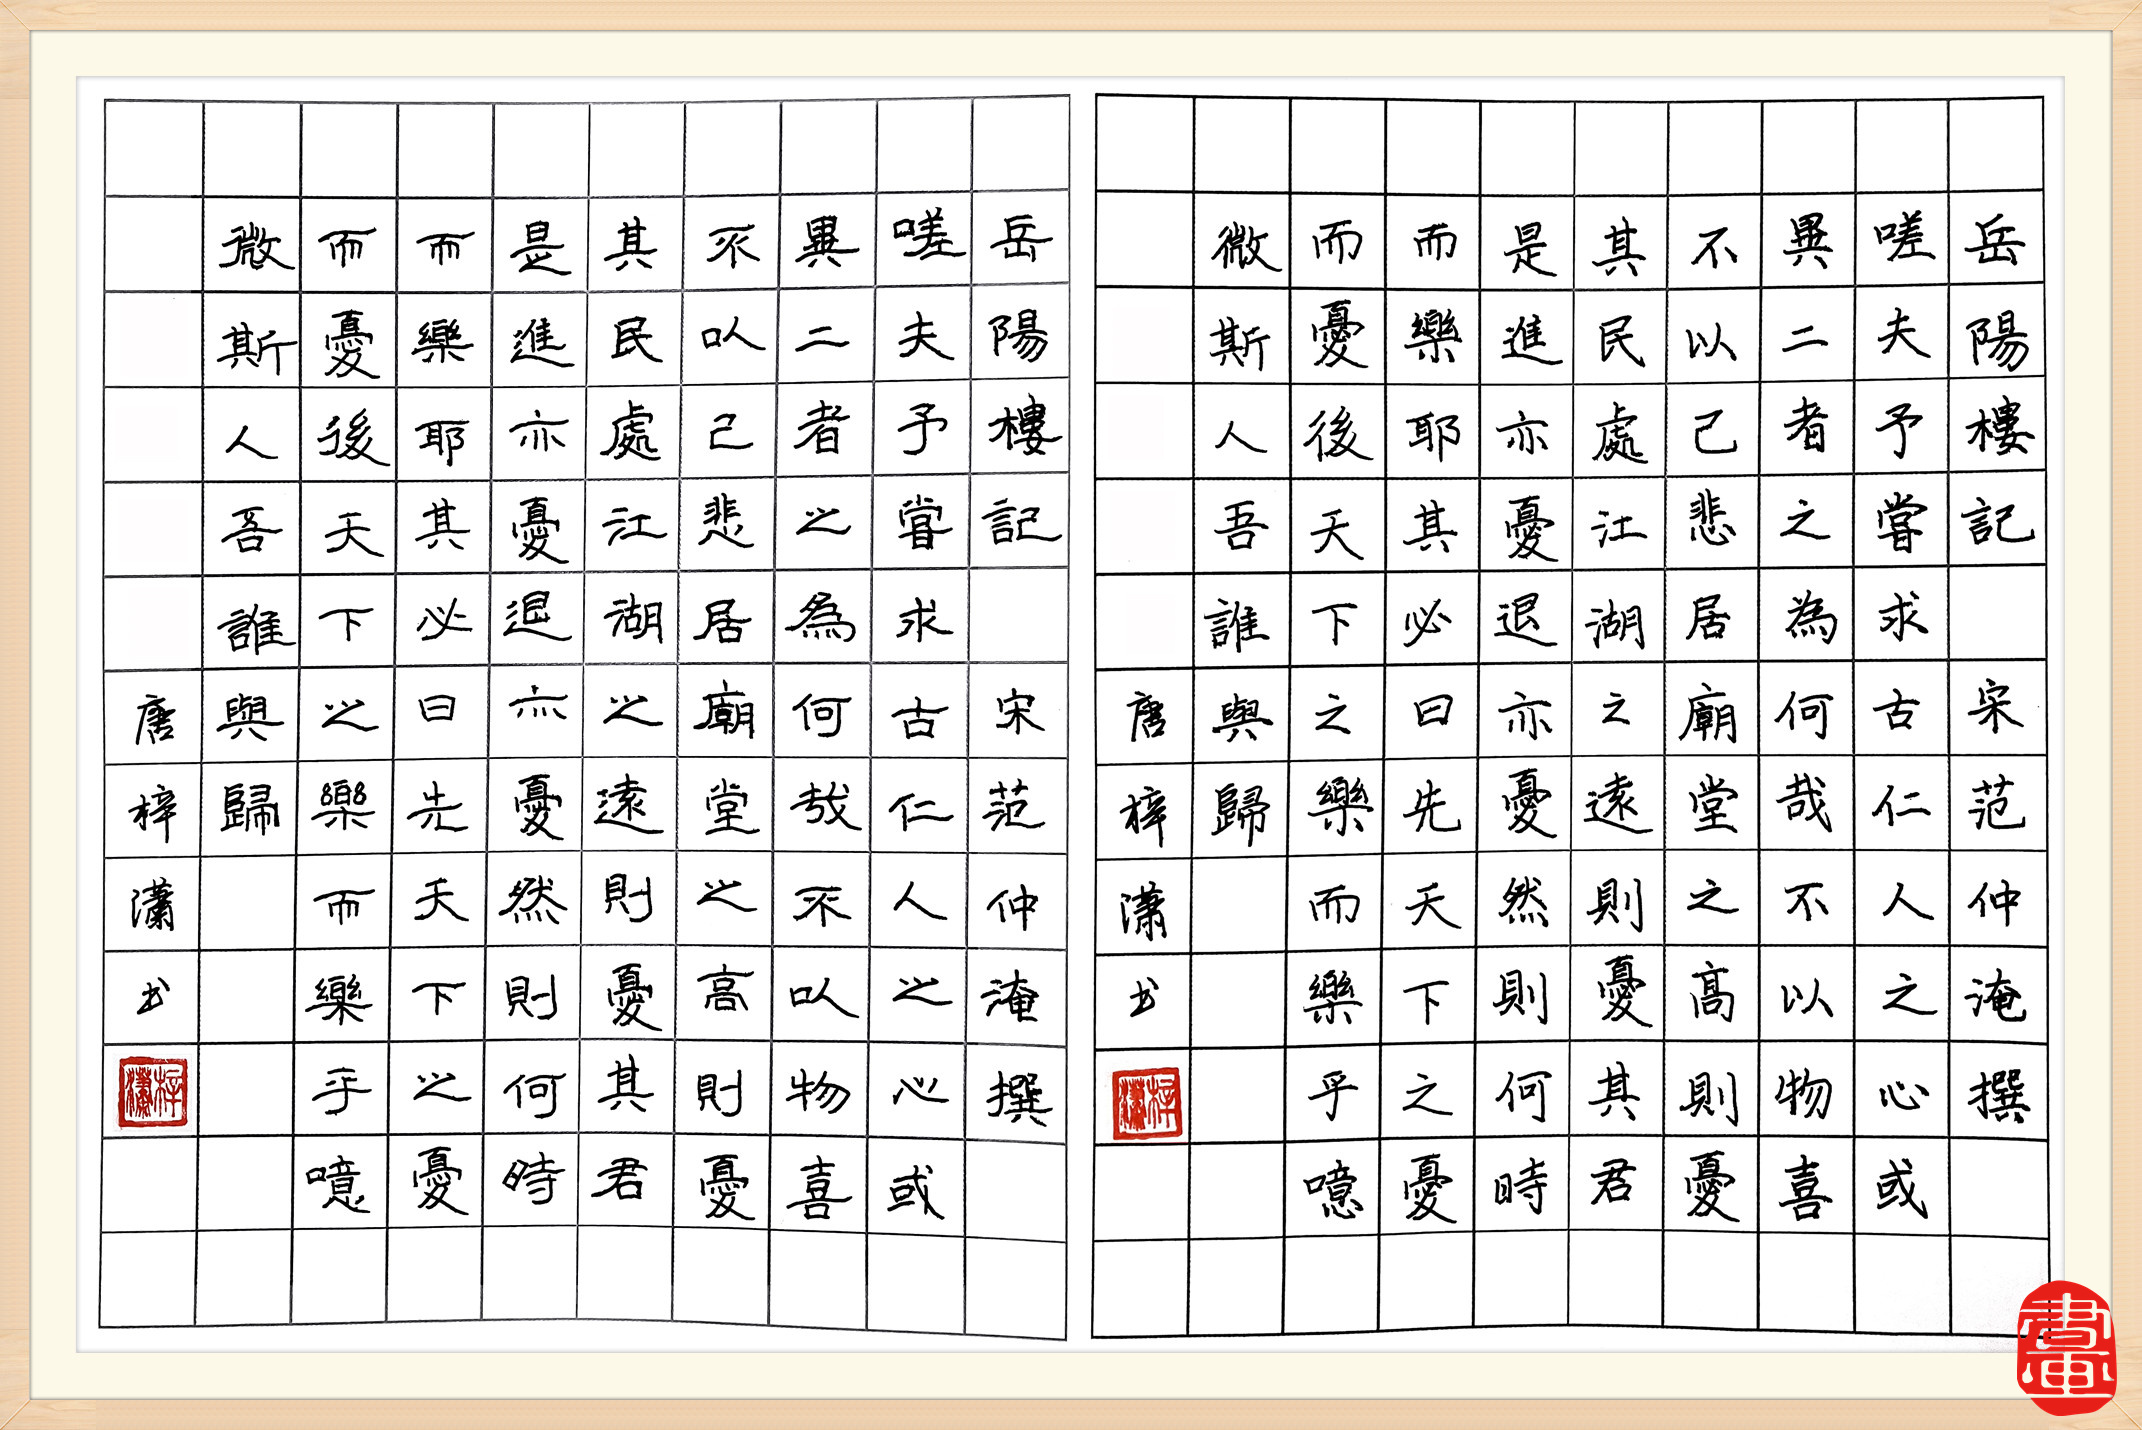 岳陽樓記 宋范仲淹撰
嗟夫予嘗求古仁人之心或
異二者之為何哉不以物喜
不以己悲居廟堂之高則憂
其民處江湖之遠則憂其君
是進亦憂退亦憂然則何時
而樂耶其必曰先天下之憂
而憂後天下之樂而樂乎噫
微斯人吾誰與歸
唐梓潇书
梓瀟
岳陽樓記 宋范仲淹撰
嗟夫予嘗求古仁人之心或
異二者之為何哉不以物喜
不以己悲居廟堂之高則憂
其民處江湖之遠則憂其君
是進亦憂退亦憂然則何時
而樂耶其必曰先天下之憂
而憂後天下之樂而樂乎噫
微斯人吾誰與歸
唐梓潇书
梓瀟
書畫